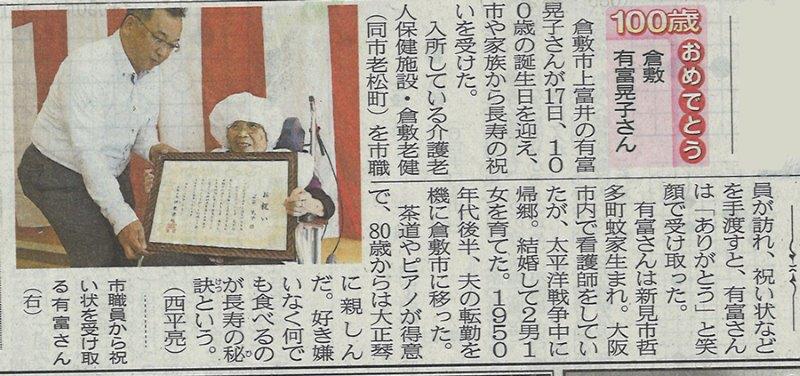 100歳おめでとう
倉敷
有富晃子さん
倉敷市上富井の有富
晃子さんが17日、10
0歳の誕生日を迎え、
市や家族から長寿の祝
いを受けた。
入所している介護老
人保健施設・倉敷老健
（同市老松町）を市職
員が訪れ、祝い状など
を手渡すと、有富さん
は「ありがとう」と笑
顔で受け取った。
有富さんは新見市哲
多町蚊家生まれ。大阪
市内で看護師をしてい
たが、太平洋戦争中に
帰郷。結婚して2男1
女を育てた。1950
年代後半、夫の転勤を
機に倉敷市に移った。
茶道やピアノが得意
で、80歳からは大正琴
に親しん
だ。好き嫌
いなく何で
も食べるの
が長寿の秘
訣という。
（西平亮）
ひ
けつ
市職員から祝
い状を受け取
る有富さん
（右）
お祝い